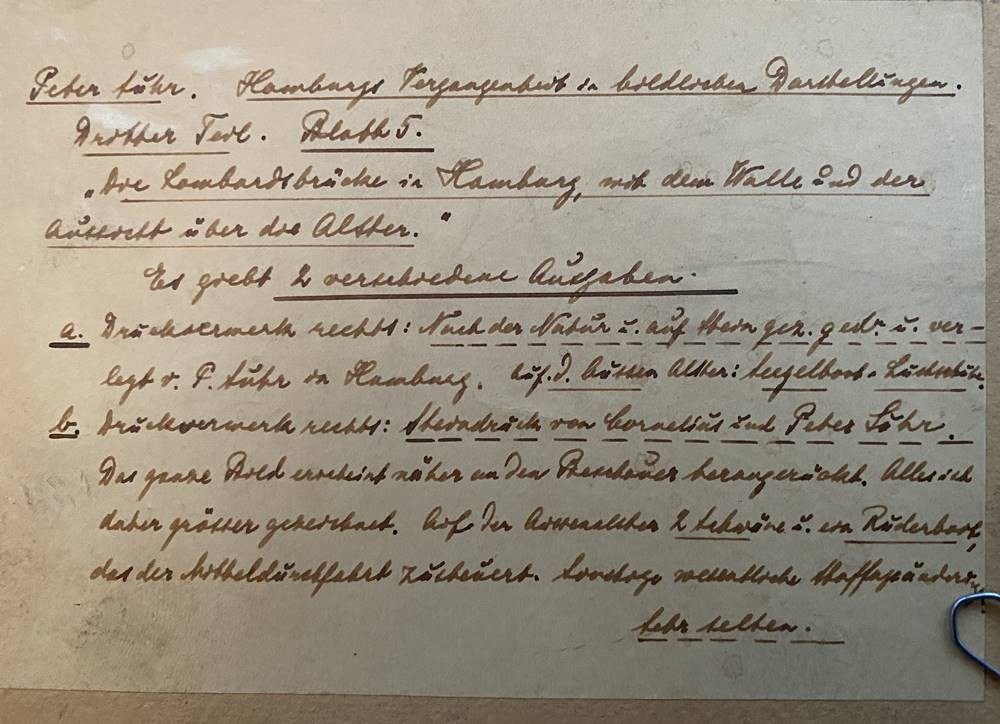 Peter Suhr. Hamburgs Vergangenheit in bildlichen Darstellungen.
Dritter Teil. Blatt 5.
„Die Lombardsbrücke in Hamburg, mit dem Walle und der
Aussicht über die Alster."
Es giebt 2 verschiedene Ausgaben.
a. Druckvermerk rechts: Nach der Natur u. auf Stein gez. gedr. u. ver-
legt v. P. Suhr in Hamburg. Auf. d. Aussen Alster: Segelboot
b. Druckvermerk rechts: Steindruck von Cornelius und Peter Suhr.
Das ganze Bild erscheint näher an den Beschauer herangerückt. Alles ist
daher grösser gezeichnet. Auf der Aussenalster 2 Schwäne u. ein Ruderboot,
das der Mitteldurchfahrt zusteuert. Sonstige wesentliche
Sehr selten.